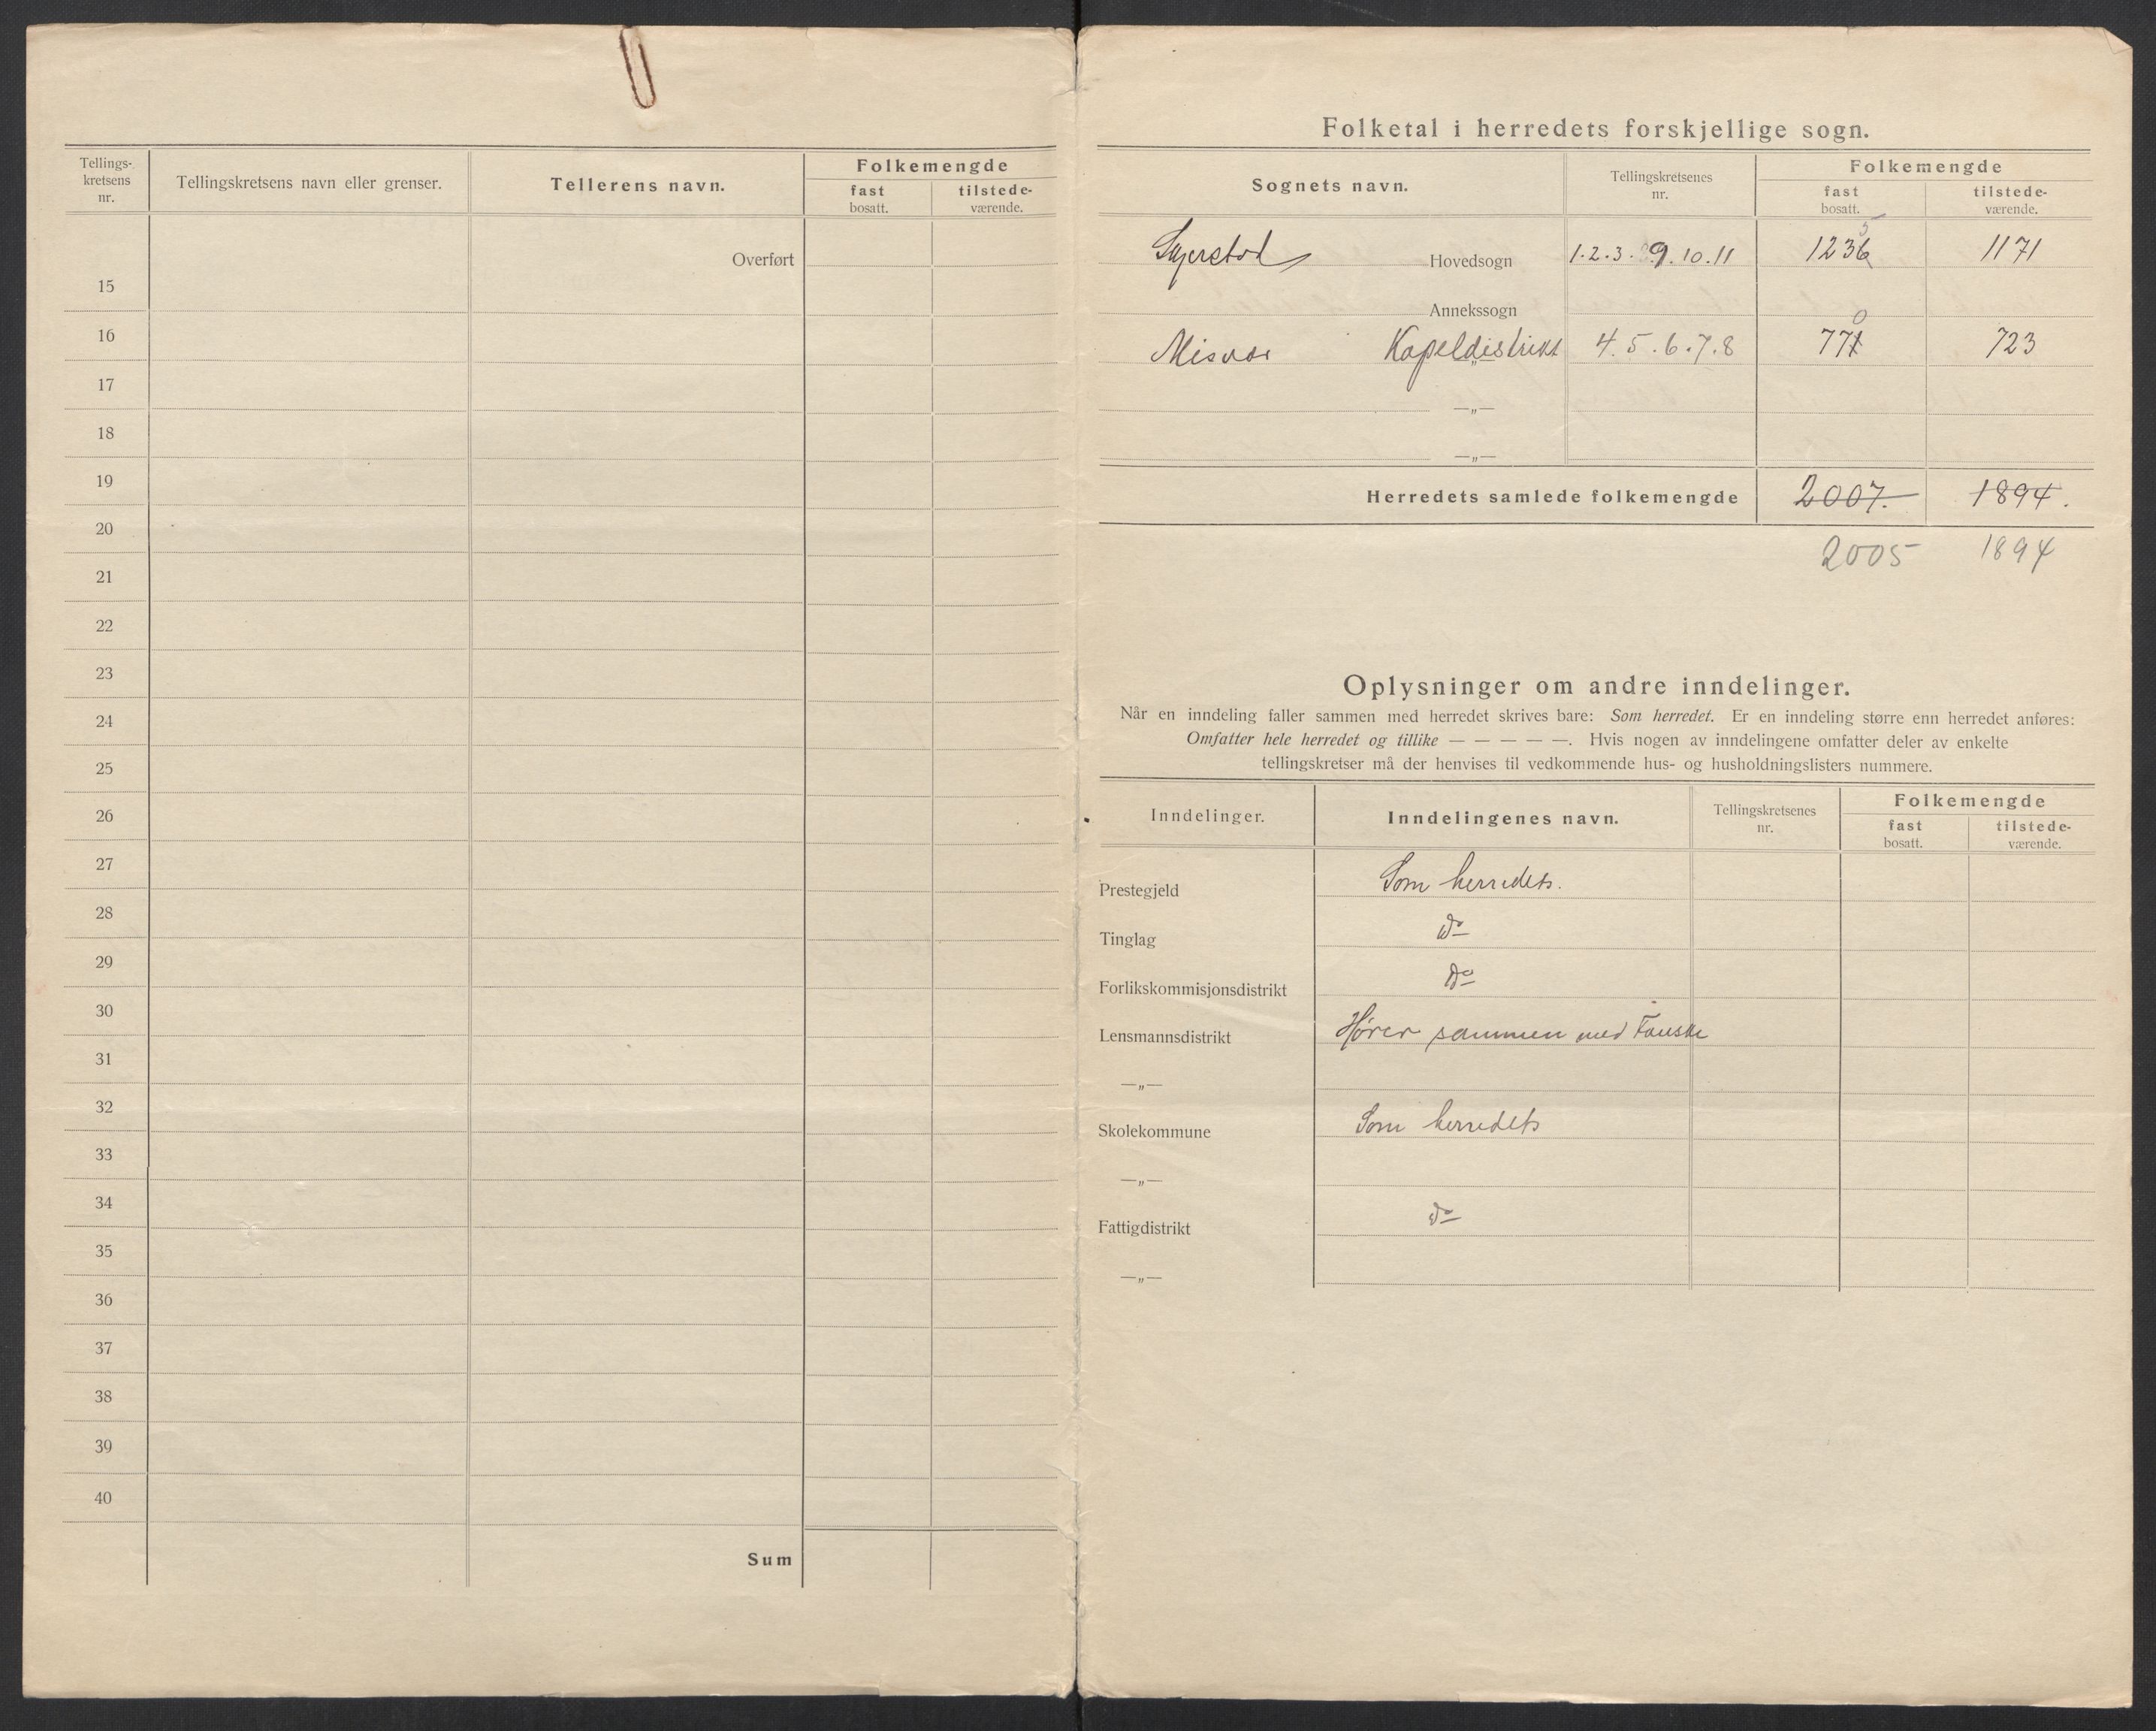 Tellings-
kretsens
nr.
Tellingskretsens navn eller grenser.
Tellerens navn.
Folkemengde
fast
bosatt.
tilstede-
værende.
Overført
15
16
17
18
19
20
21
22
23
24
25
26
27
28
29
30
31
32
33
34
35
36
37
38
39
40
Sum
Folketal i herredets forskjellige sogn.
Sognets navn.
Tellingskretsenes
nr.
Folkemengde
fast
bosatt.
tilstede-
værende.
5
Skjerstad Hovedsogn 1.2.3.9.10.11 1236 1171
Annekssogn
0
Misvær Kapeldistrikt 4.5.6.7.8 771 723
—„—
—„—
Herredets samlede folkemengde 2007. 1894.
2005 1894
Oplysninger om andre inndelinger.
Når en inndeling faller sammen med herredet skrives bare: Som herredet. Er en inndeling større enn herredet anføres:
Omfatter hele herredet og tillike — — — — —. Hvis nogen av inndelingene omfatter deler av enkelte
tellingskretser må der henvises til vedkommende hus- og husholdningslisters nummere.
Inndelinger.
Inndelingenes navn.
Tellingskretsenes
nr.
Folkemengde
fast
bosatt.
tilstede-
værende.
Prestegjeld Som herredets.
Tinglag do
Forlikskommisjonsdistrikt do
Lensmannsdistrikt Hører sammen med Fauske
—„—
Skolekommune Som herredets
—„—
Fattigdistrikt do
—„—